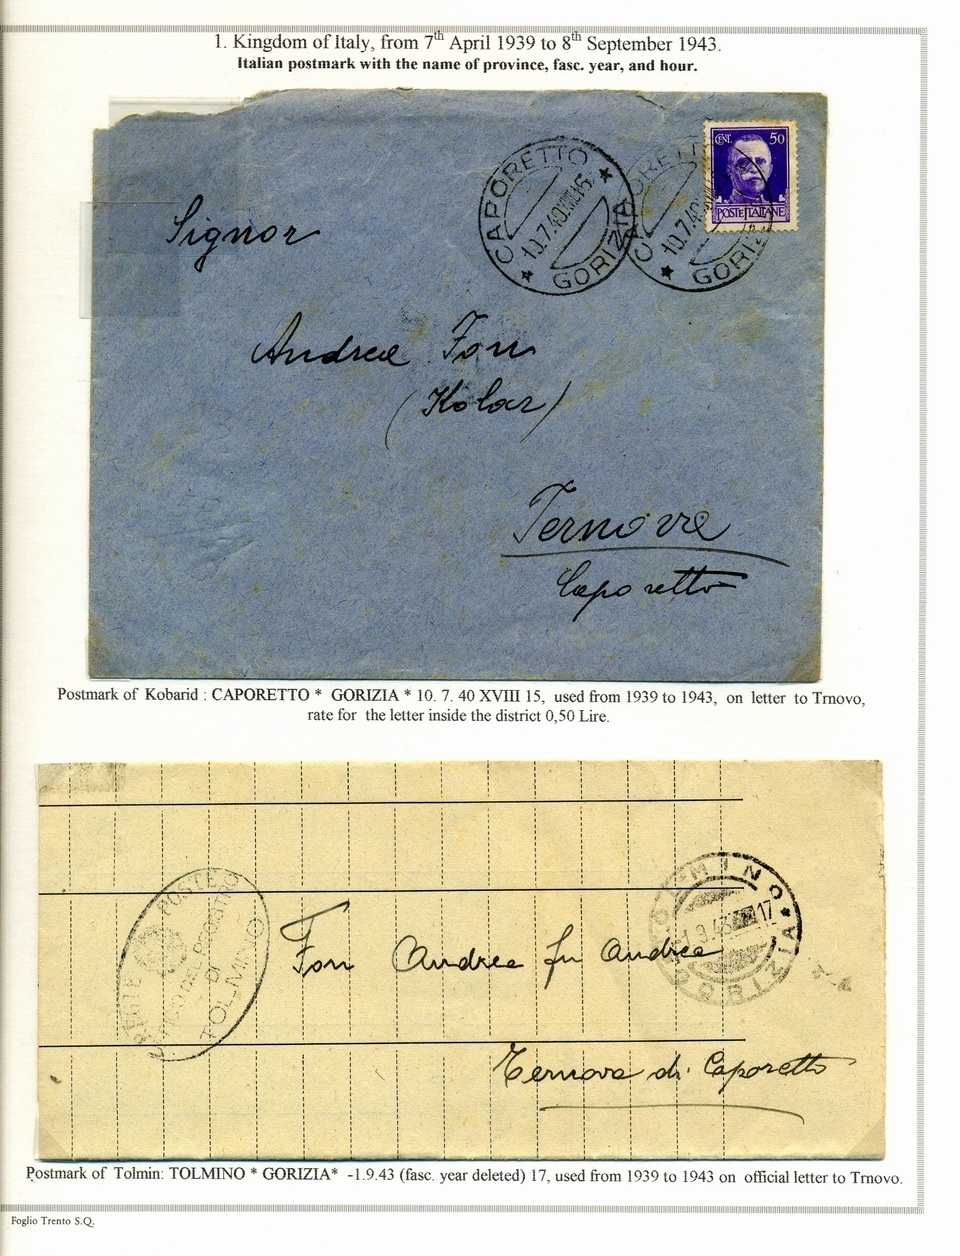 1. Kingdom of Italy, from 7th April 1939 to 8th September 1943.
Italian postmark with the name of province, fasc. year, and hour.
CAPORETTO
10.7.40 XVIII 15
GORIZIA
CAPORETTO
10.7.40
GORIZIA
CENT. 50
POSTE ITALIANE
Signor
Andrea Fon
(Kolar)
Ternova
Caporetto
Postmark of Kobarid : CAPORETTO * GORIZIA * 10. 7. 40 XVIII 15, used from 1939 to 1943, on letter to Trnovo,
rate for the letter inside the district 0,50 Lire.
TOLMINO
1.9.43 17
GORIZIA
UFFICIO DEL REGISTRO
DI
TOLMINO
Fon Andrea fu Andrea
Ternova di Caporetto
Postmark of Tolmin: TOLMINO * GORIZIA* -1.9.43 (fasc. year deleted) 17, used from 1939 to 1943 on official letter to Trnovo.
Foglio Trento S.Q.